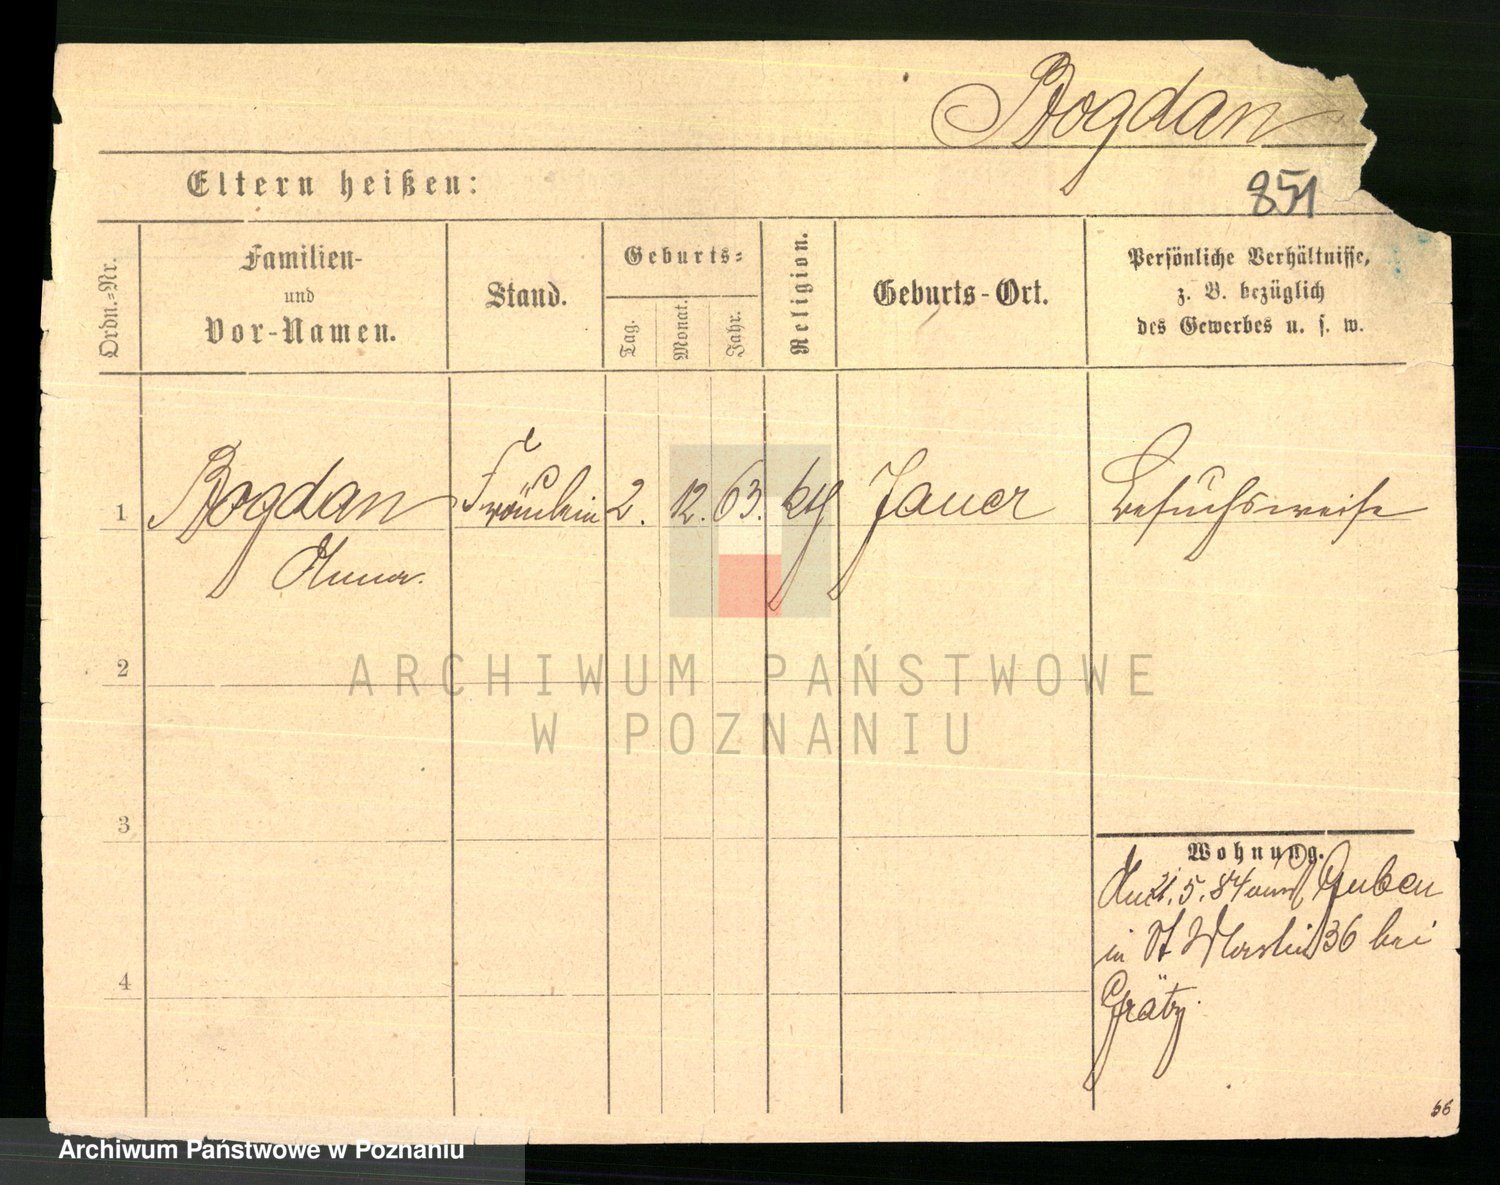 Bogdan
851
Eltern heißen:
Ordn.-Nr.
Familien-
und
Vor-Namen.
Stand.
Geburts-
Tag.
Monat.
Jahr.
Religion.
Geburts-Ort.
Persönliche Verhältnisse,
z. B. bezüglich
des Gewerbes u. s. w.
1 Bogdan Fräulein 2. 12. 63. kth Jauer besuchsweise
Anna.
2
3
4
Wohnung.
An 21. 5. 84 aus Guben
in St Martin 36 bei
Grätz.
66
ARCHIWUM PAŃSTWOWE
W POZNANIU
Archiwum Państwowe w Poznaniu